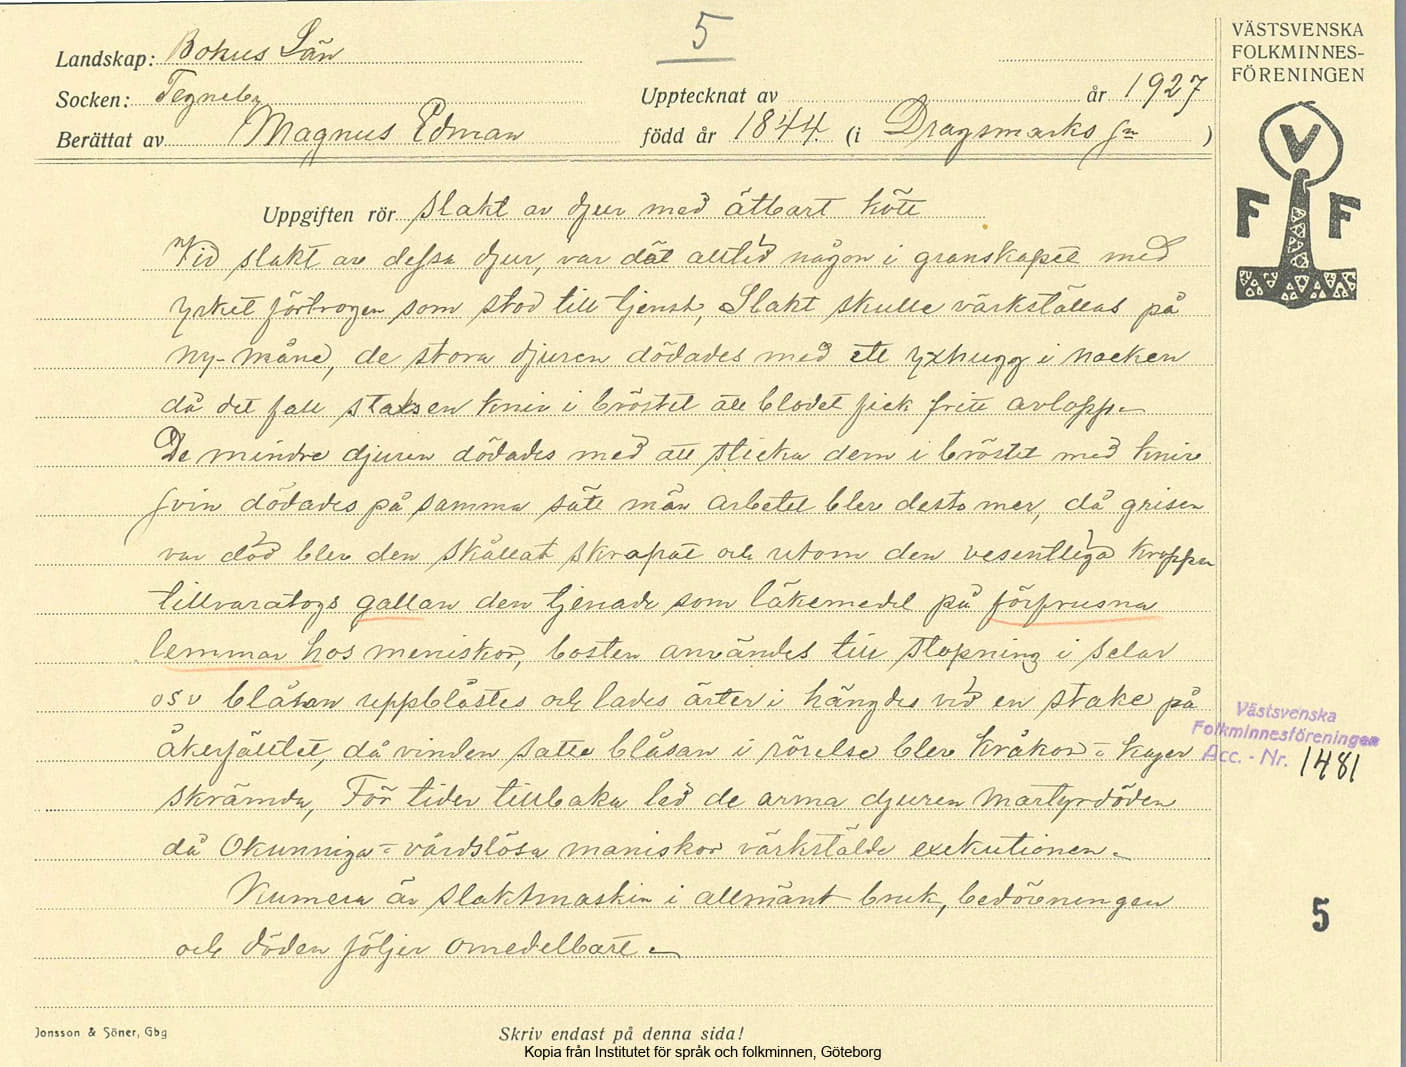 5
VÄSTSVENSKA
FOLKMINNES-
FÖRENINGEN
V
F F
Landskap: Bohus Län
Socken: Tegneby
Upptecknat av år 1927
Berättat av Magnus Edman född år 1844. (i Dragsmarks sn )
Uppgiften rör slakt av djur med ätbart kött
Vid slakt av dessa djur, var dät alltid någon i granskapet med
yrket förtrogen som stod till tjenst, Slakt skulle värkställas på
ny-måne, de stora djuren dödades med ett yxhugg i nacken
då det fall staks en kniv i bröstet att blodet fick fritt avlopp.
De mindre djuren dödades med att sticka dem i bröstet med kniv
svin dödades på samma sätt män arbetet blev desto mer, då grisen
var död blev den skållat skrapat och utom den vesentliga kroppen
tillvaratogs gallan den tjenade som läkemedel på förfrusna
lemmar hos meniskor, bosten användes till stopning i selar
osv blåsan uppblåstes och lades ärter i hängdes vid en stake på
åkerfältet, då vinden satte blåsan i rörelse blev kråkor = kajer
skrämda, För tider tillbaka led de arma djuren Martyrdöden
då Okunniga = vårdslösa maniskor värkstälde exekutionen.
Numera är slaktmaskin i allmänt bruk, bedövningen
och döden följer omedelbart.
Västsvenska
Folkminnesföreningen
Acc. - Nr. 1481
5
Jonsson & Söner, Gbg
Skriv endast på denna sida!
Kopia från Institutet för språk och folkminnen, Göteborg